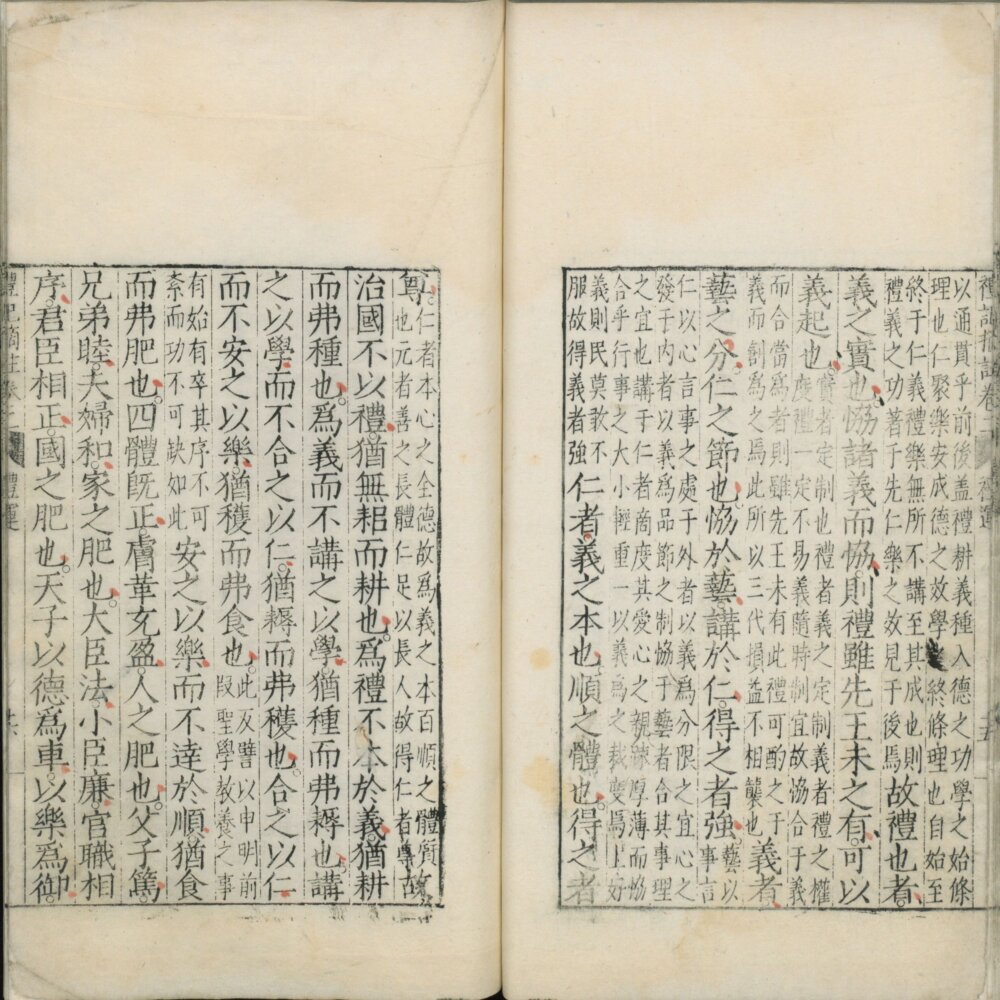 禮記摘註卷二 禮運 十五
以通貫乎前後盖禮耕義種入德之功學之始條
理也仁聚樂安成德之效學之終條理也自始至
終于仁義禮樂無所不講至其成也則
禮義之功著于先仁樂之效見于後焉故禮也者
義之實也恊諸義而恊則禮雖先王未之有可以
義起也實者定制也禮者義之定制義者禮之權
度禮一定不易義隨時制宜故恊合于義
而合當爲者則雖先王未有此禮可酌之于
義而創爲之焉此所以三代損益不相襲也義者
藝之分仁之節也恊於藝講於仁得之者強藝以
事言
仁以心言事之處于外者以義爲分限之宜心之
發于内者以義爲品節之制恊于藝者合其事理
之宜也講于仁者商度其愛心之親踈厚薄而恊
合乎行事之大小輕重一以義爲之裁斐焉上好
義則民莫敢不
服故得義者強仁者義之本也順之體也得之者
尊仁者本心之全德故爲義之本百順之體質
也元者善之長體仁足以長人故得仁者尊故
治國不以禮猶無耜而耕也爲禮不本於義猶耕
而弗種也爲義而不講之以學猶種而弗耨也講
之以學而不合之以仁猶耨而弗穫也合之以仁
而不安之以樂猶穫而弗食也此反譬以申明前
叚聖學教養之事
有始有卒其序不可
紊而功不可缺如此安之以樂而不達於順猶食
而弗肥也四體旣正膚革充盈人之肥也父子篤
兄弟睦夫婦和家之肥也大臣法小臣廉官職相
序君臣相正國之肥也天子以德爲車以樂爲御
禮記摘註卷二 禮運 十六